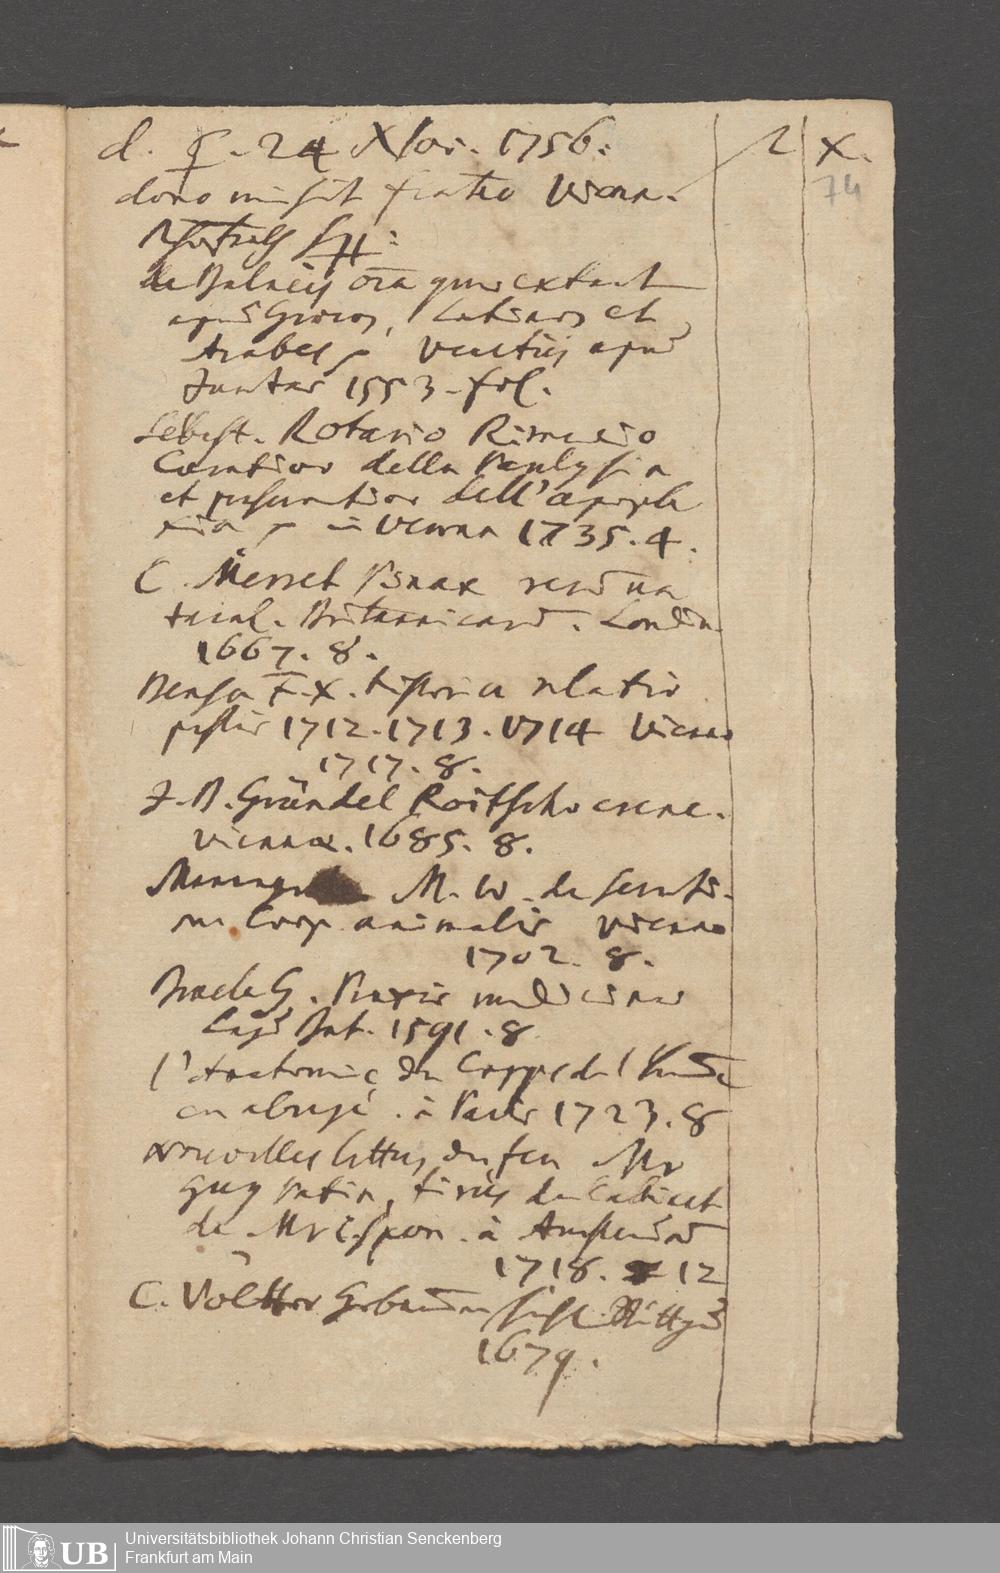 d. ♀. 24 Xbr. 1756.
dono misit frater Vienna.
2 x.
74
de Balneis oīa quae extant
apud Graecos, Latinos et
Arabes Venetiis apud
Juntas 1553. fol.
Sebast. Rotario Rimedio
Curativo della Paralysia
et preservativo dell'apople
xia in Verona 1735. 4.
C. Merret Pinax rerū na
tural. Britannicarū. Londin.
1667. 8.
F. X. historica relatio
pestis 1712. 1713. 1714 Viennae
1717. 8.
J. B. Gründel Roitschocrene.
Viennae. 1685. 8.
M. W. de
Corp. animalis Viennae
1702. 8.
G. Praxis medicinae
Lugd Bat. 1591. 8
l'Anatomie du Corps de l'
en abregé. à Paris 1723. 8
nouvelles lettres du feu Mr
Guy Patin, tirées du Cabinet
de Mr C. Spon. à Amsterdam
1718. 12
C. Völtter
1679.
Universitätsbibliothek Johann Christian Senckenberg
Frankfurt am Main
UB